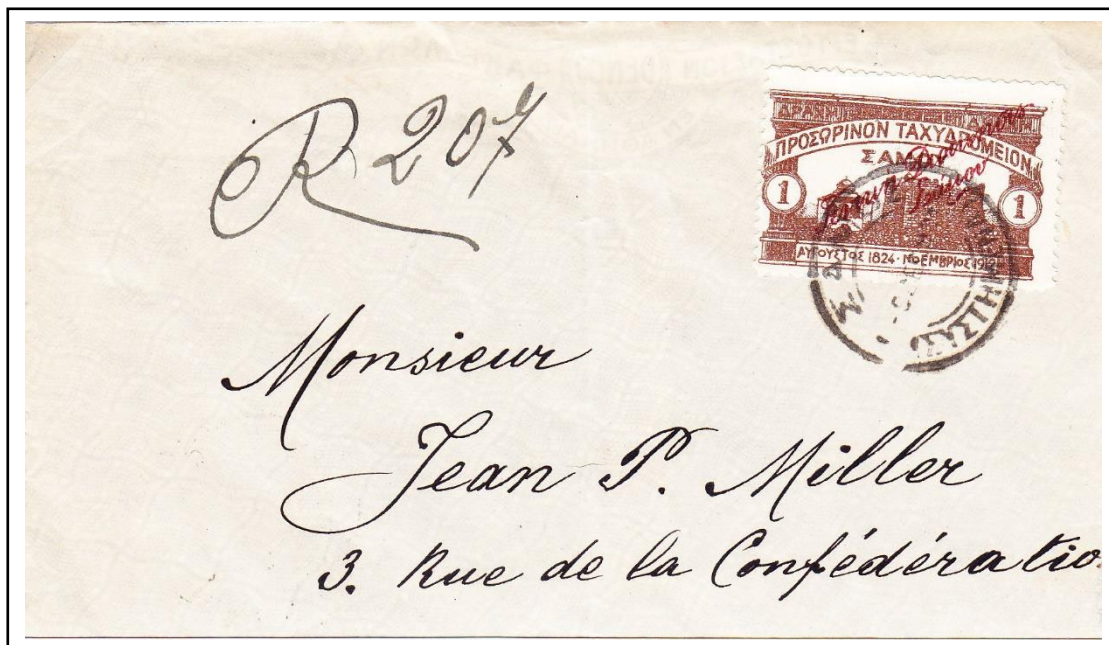 R 207
ΔΡΑΧΜΗ
ΠΡΟΣΩΡΙΝΟΝ ΤΑΧΥΔΡΟΜΕΙΟΝ
ΣΑΜΟΥ
1 1
ΑΥΓΟΥΣΤΟΣ 1824 - ΝΟΕΜΒΡΙΟΣ 1912
Monsieur
Jean P. Miller
3. Rue de la Confédératio